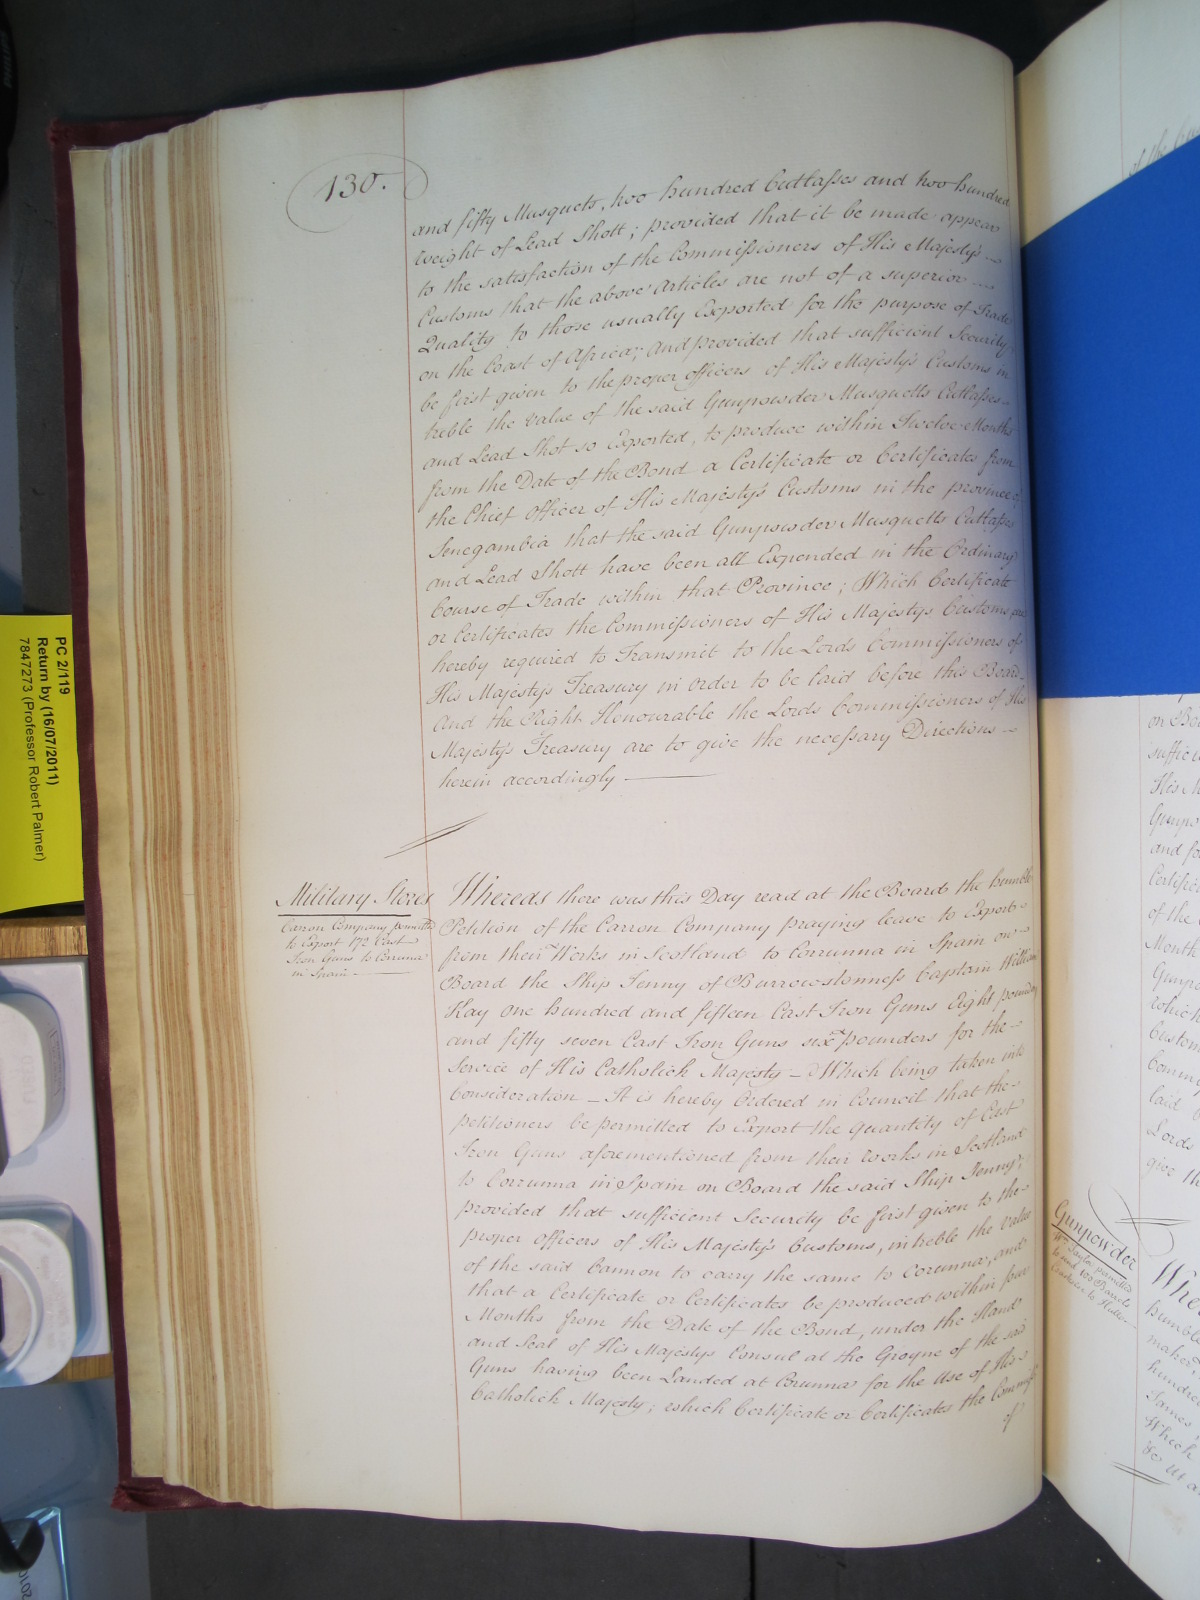 130.
and fifty Musquets, two hundred Cutlaſses and two hundred
weight of Lead Shott; provided that it be made appear
to the satisfaction of the Commiſsioners of His Majesty's
Customs that the above Articles are not of a superior
Quality to those usually Exported for the purpose of Trade
on the Coast of Africa; And provided that sufficient Security
be first given to the proper officers of His Majesty's Customs in
treble the value of the said Gunpowder Musquetts Cutlaſses
and Lead Shot so Exported, to produce within Twelve Months
from the Date of the Bond a Certificate or Certificates from
the Chief Officer of His Majesty's Customs in the province of
Senegambia that the said Gunpowder Musquetts Cutlaſses
and Lead Shott have been all Expended in the Ordinary
Course of Trade within that Province; Which Certificate
or Certificates the Commiſsioners of His Majestys Customs are
hereby required to Transmit to the Lords Commiſsioners of
His Majestys Treasury in order to be laid before this Board
And the Right Honourable the Lords Commiſsioners of His
Majesty's Treasury are to give the neceſsary Directions
herein accordingly
Military Stores
Carron Company permitted
to Export 172 Cast
Iron Guns to Corrunna
in Spain
Whereas there was this Day read at the Board the humble
Petition of the Carron Company praying leave to Export
from their Works in Scotland to Corrunna in Spain on
Board the Ship Jenny of Burrowstonneſs Captain William
Hay one hundred and fifteen Cast Iron Guns Eight pounders
and fifty seven Cast Iron Guns six pounders for the
Service of His Catholick Majesty — Which being taken into
Consideration — It is hereby Ordered in Council that the
petitioners be permitted to Export the Quantity of Cast
Iron Guns aforementioned from their works in Scotland
to Corrunna in Spain on Board the said Ship Jenny,
provided that sufficient Security be first given to the
proper officers of His Majesty's Customs, in treble the Value
of the said Cannon to carry the same to Corunna, and
that a Certificate or Certificates be produced within four
Months from the Date of the Bond, under the Hand
and Seal of His Majestys Consul at the Groyne of the said
Guns having been Landed at Corunna for the Use of His
Catholick Majesty; which Certificate or Certificates the Commiſs
of
PC 2/119
Return by (16/07/2011)
7847273 (Professor Robert Palmer)
of the
on Bo
suffici
His M
Gunpo
and fo
Certific
of the
Month
Gunpo
which
Custom
Commi
laid
Lords
give th
Gunpowder
Whe
humble
maker
hundred
James
Which